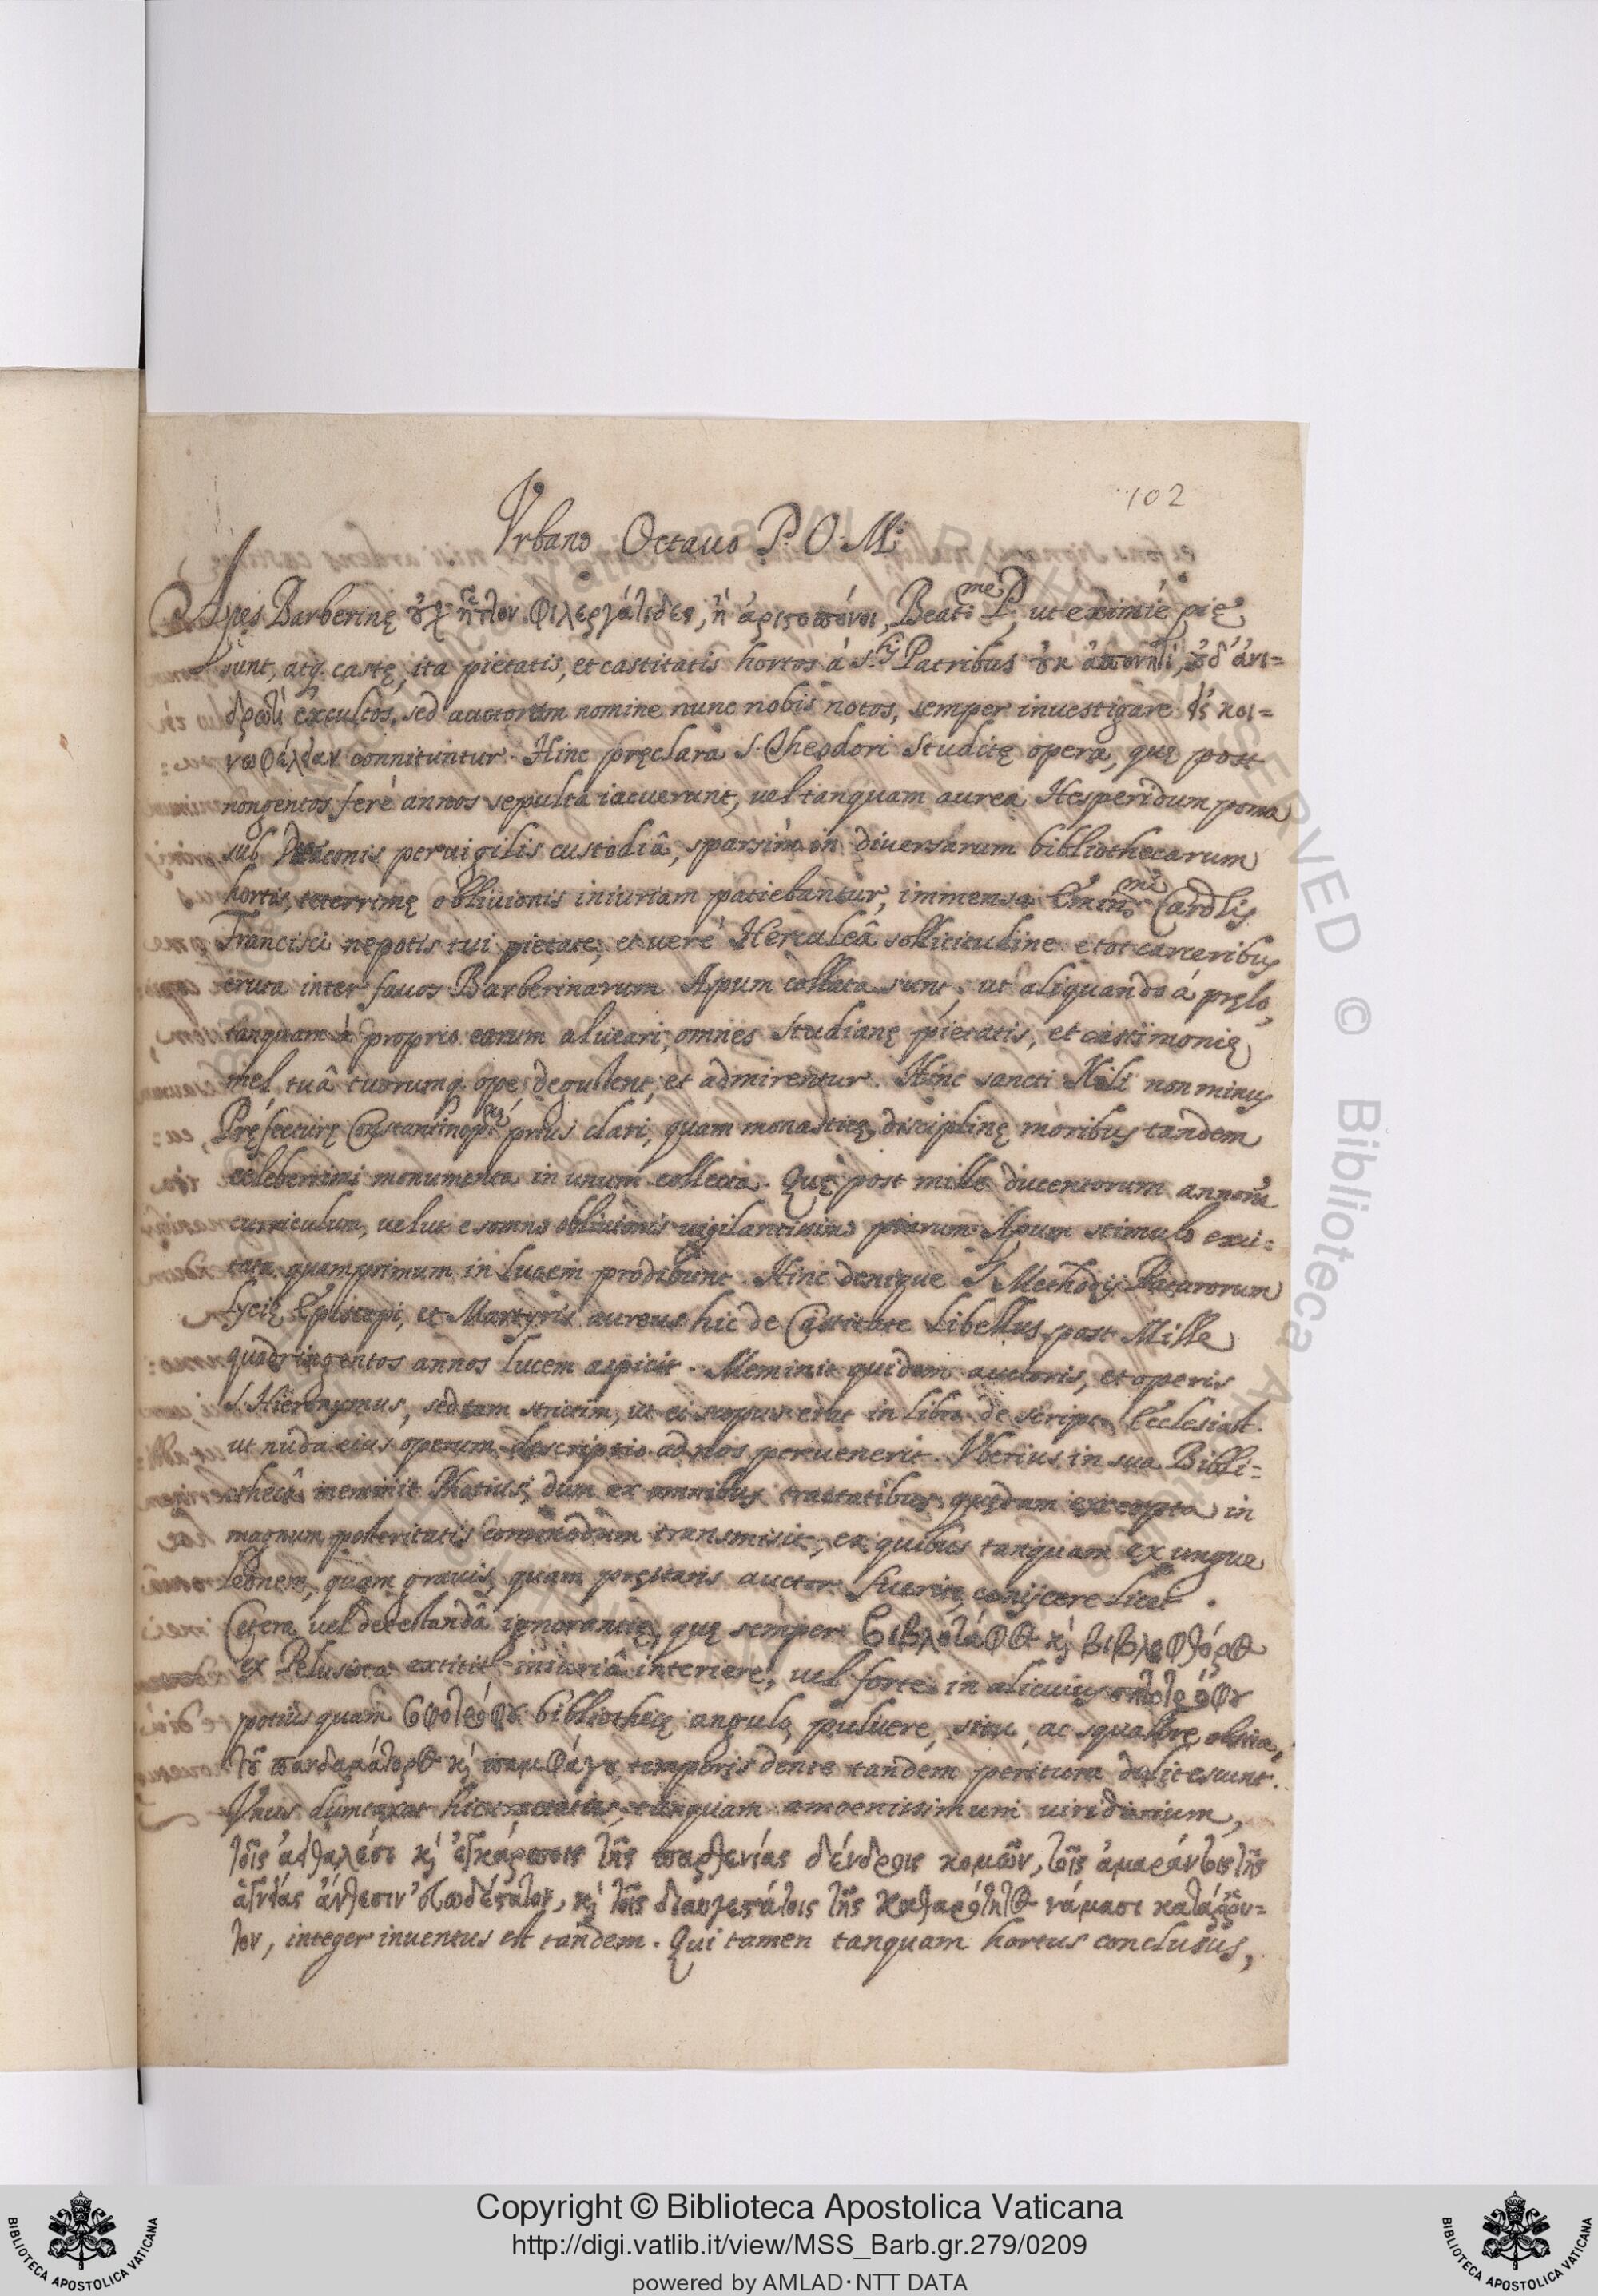 102
Vrbano Octauo P. O. M.
Apes Barberinę οὐχ ἧττον φιλεργάτιδες, ἢ ἀριστοπόνοι, Beat.me P. ut eximiè pię
sunt, atq. castę, ita pietatis, et castitatis hortos à S.tis Patribus οὐκ ἀπονητὶ, οὐδ' ἀνι=
δρωτὶ excultos, sed auctorum nomine nunc nobis notos, semper inuestigare εἰς κοι=
νωφέλειαν connituntur. Hinc pręclara S. Theodori Studitę opera, quę post
nongentos ferè annos sepulta iacuerunt, uel tanquam aurea Hesperidum poma
sub Draconis peruigilis custodiâ, sparsim in diuersarum bibliothecarum
hortis, teterrimę obliuionis iniuriam patiebantur, immensa Emin.mi Cardlis
Francisci nepotis tui pietate, et uerè Herculeâ sollicitudine e tot carceribus
eruta inter fauos Barberinarum Apum collata sunt; ut aliquando à pręlo,
tanquam à proprio earum alueari, omnes Studianę pietatis, et castimonię
mel, tuâ tuorumq. ope, degustent, et admirentur. Hinc sancti Nili non minus
Pręfecturę Constantinop.næ prius clari, quam monasticę disciplinę moribus tandem
celeberrimi monumenta in unum collecta. Quę post mille ducentorum annorũ
curriculum, uelut e somno obliuionis uigilantissimo piarum Apum stimulo exci=
tata quamprimum in lucem prodibunt. Hinc denique S. Methodij Patarorum
Lycię Episcopi, et Martyris aureus hic de Castitate Libellus post Mille
quadringentos annos lucem aspicit. Meminit quidem auctoris, et operis
S. Hieronymus, sed tam strictim, ut ei scopus erat in libro de script. Ecclesiast.
ut nuda eius operum descriptio ad nos peruenerit. Vberius in sua Bibli=
othecâ meminit Photius, dum ex omnibus tractatibus quędam excerpta in
magnum posteritatis commodum transmisit, ex quibus tanquam ex ungue
Leonem, quàm grauis, quam pręstans auctor fuerit, conijcere licet.
Cętera uel detestandâ ignorantię, quę semper βιβλιοτάφθ κὶ βιβλιοφθόρθ
ex Pelusiota extitit iniuriâ interiere, uel forte in alicuius σητοτρόφου
potiùs quam σοφοτρόφου bibliothecę angulo, puluere, situ, ac squalore obsita,
τοῦ πανδαμάτορος κὶ παμφάγου temporis dente tandem peritura delitescunt.
Vnus dumtaxat hic tractatus, tanquam amoenissimum uiridarium,
τοῖς ἀειθαλέσι κὶ εὐκάρποις τῆς παρθενίας δένδροις κομῶν, τοῖς ἀμαράντοις τῆς
ἁγνείας ἄνθεσιν εὐωδέστατον, κὶ τοῖς διαυγεστάτοις τῆς καθαρότητος νάμασι κατάῤῥυ=
τον, integer inuentus est tandem. Qui tamen tanquam hortus conclusus,
Copyright © Biblioteca Apostolica Vaticana
http://digi.vatlib.it/view/MSS_Barb.gr.279/0209
powered by AMLAD·NTT DATA
BIBLIOTECA APOSTOLICA VATICANA
BIBLIOTECA APOSTOLICA VATICANA